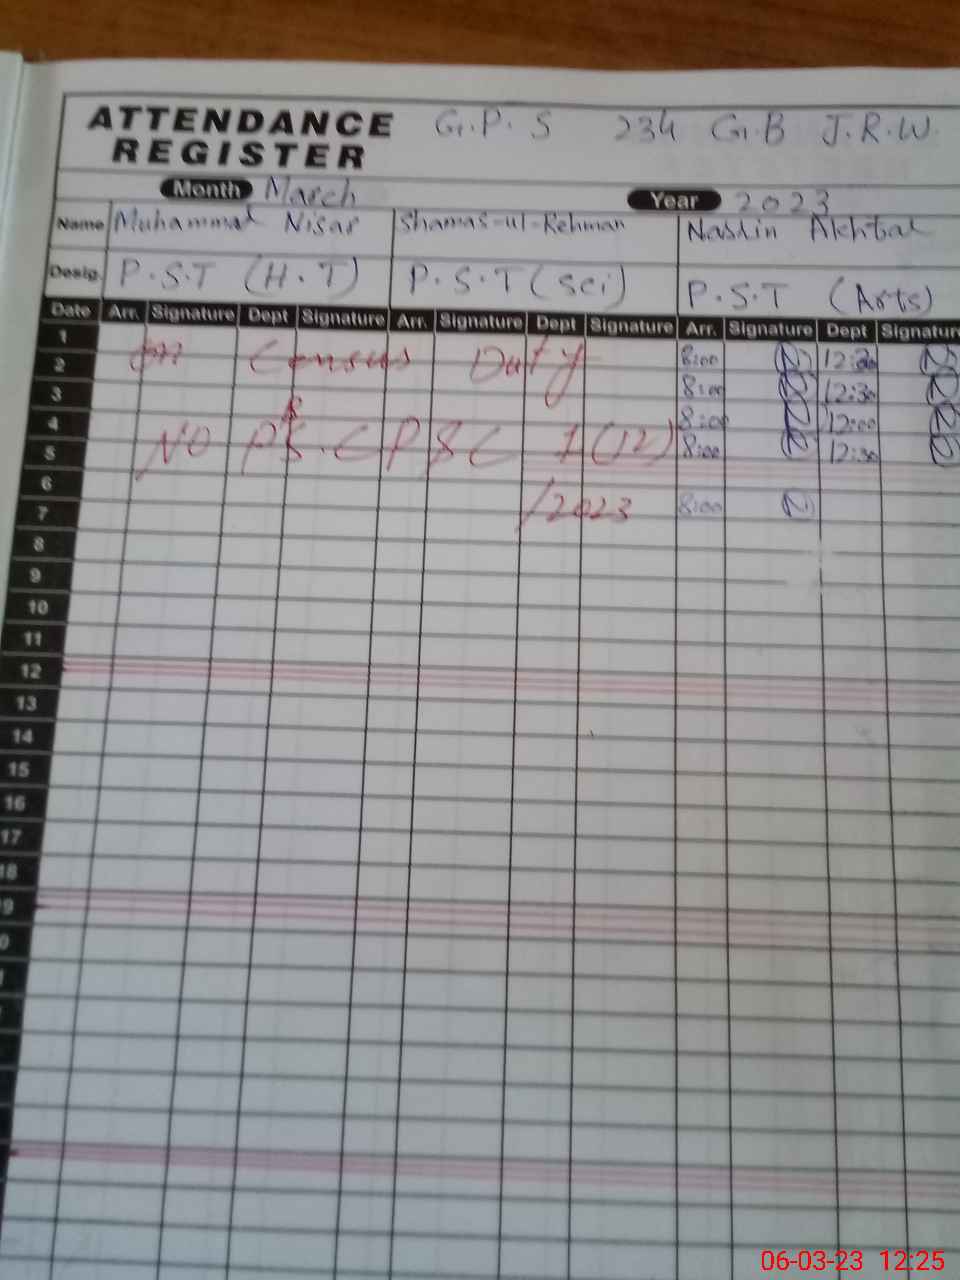 ATTENDANCE REGISTER G.P.S 234 G.B J.R.W.
Month March Year 2023
Name Muhammad Nisar Shamas-ul-Rehman Nasrin Akhtar
Desig. P.S.T (H.T) P.S.T (Sci) P.S.T (Arts)
Date Arr. Signature Dept Signature Arr. Signature Dept Signature Arr. Signature Dept Signature
1 8:00 N 12:30 N
2 on Census Duty 8:00 N 12:30 N
3 8:00 N 12:00 N
4 NO PSC 1 (12) 8:00 N 12:30 N
5
6 /2023 8:00 N
7
8
9
10
11
12
13
14
15
16
17
18
9
0
06-03-23 12:25